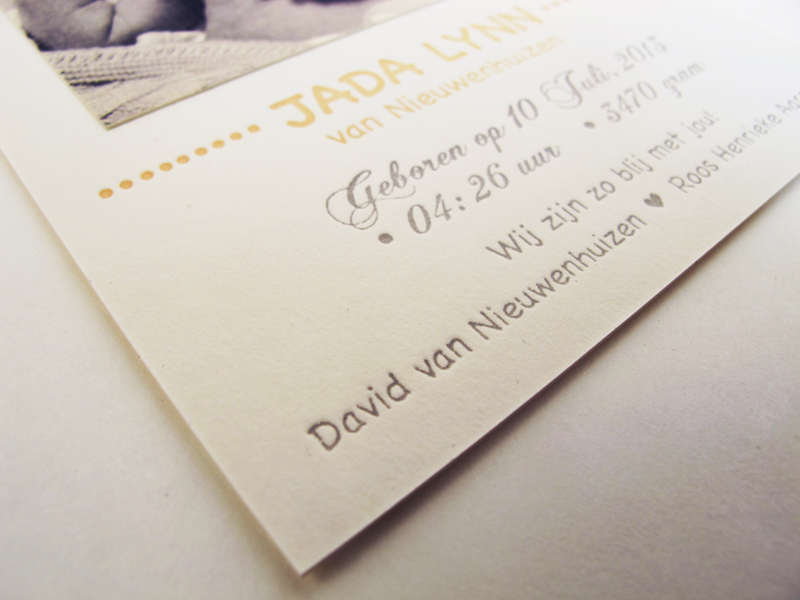 JADA LYNN
van Nieuwenhuizen
Geboren op 10 Juli, 2013
• 04:26 uur • 3470 gram
Wij zijn zo blij met jou!
David van Nieuwenhuizen ♥ Roos Henrieke